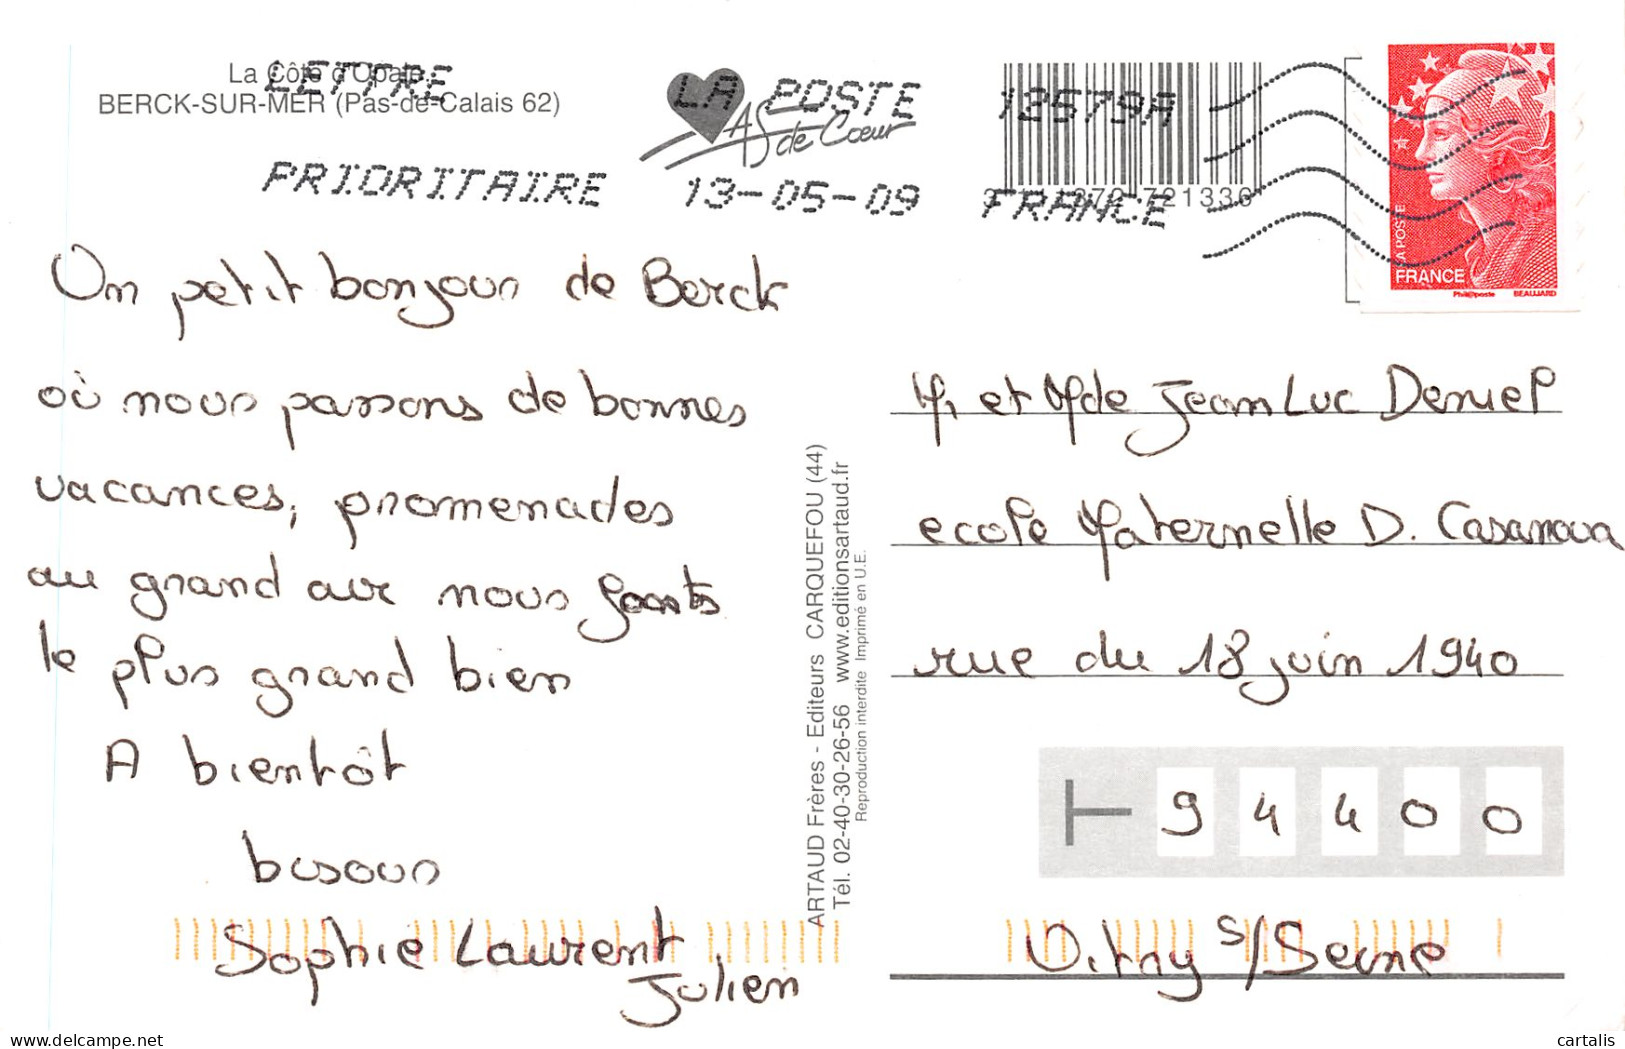 La Côte d'Opale
BERCK-SUR-MER (Pas-de-Calais 62)
LETTRE
PRIORITAIRE
LA POSTE
13-05-09
As de Cœur
12579A
FRANCE
721336
A POSTE
FRANCE
Phil@poste BEAUJARD
Un petit bonjour de Berck
où nous passons de bonnes
vacances, promenades
au grand air nous fonts
le plus grand bien
A bientôt
bisous
Sophie Laurent
Julien
ARTAUD Frères - Editeurs CARQUEFOU (44)
Tél. 02-40-30-26-56 www.editionsartaud.fr
Reproduction interdite Imprimé en U.E.
M, et Mde Jean Luc Deniel
ecole Maternelle D. Casanova
rue du 18 juin 1940
94400
Vitry s/Seine
cartalis
delcampe.net